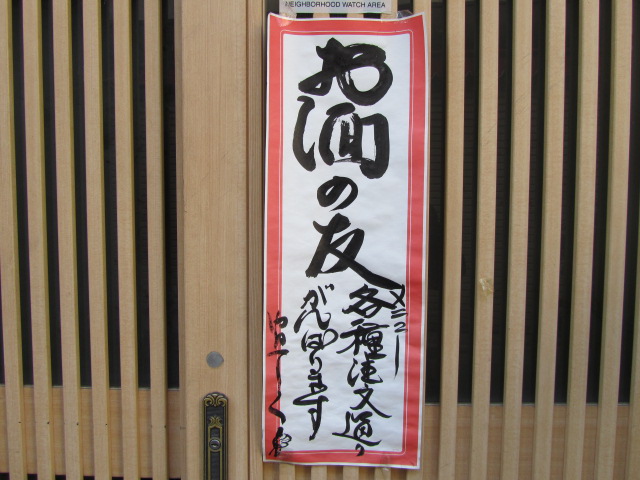 NEIGHBORHOOD WATCH AREA
お酒の友
メニュー
各種注文通り
がんばります